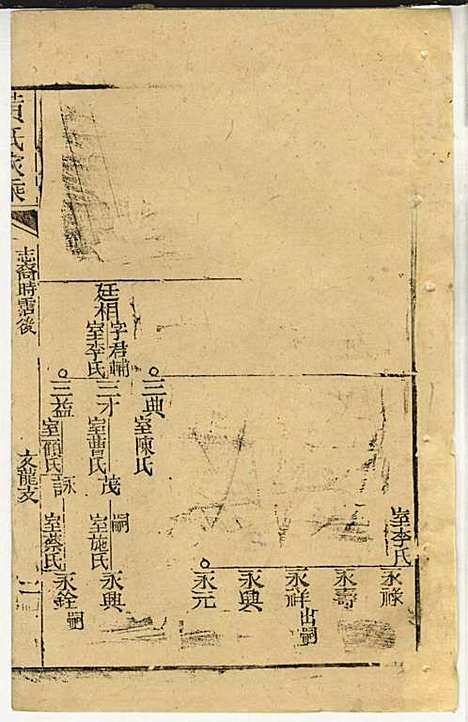 室李氏
永祿
永壽
永祥
出嗣
永興
永元
三典
室陳氏
廷相
字君輔
室李氏
三才
室曹氏
茂
嗣
室施氏
永興
三益
室顧氏
詠
室蔡氏
永銓
嗣
黃氏家乘
志裔時霑後
文龍支